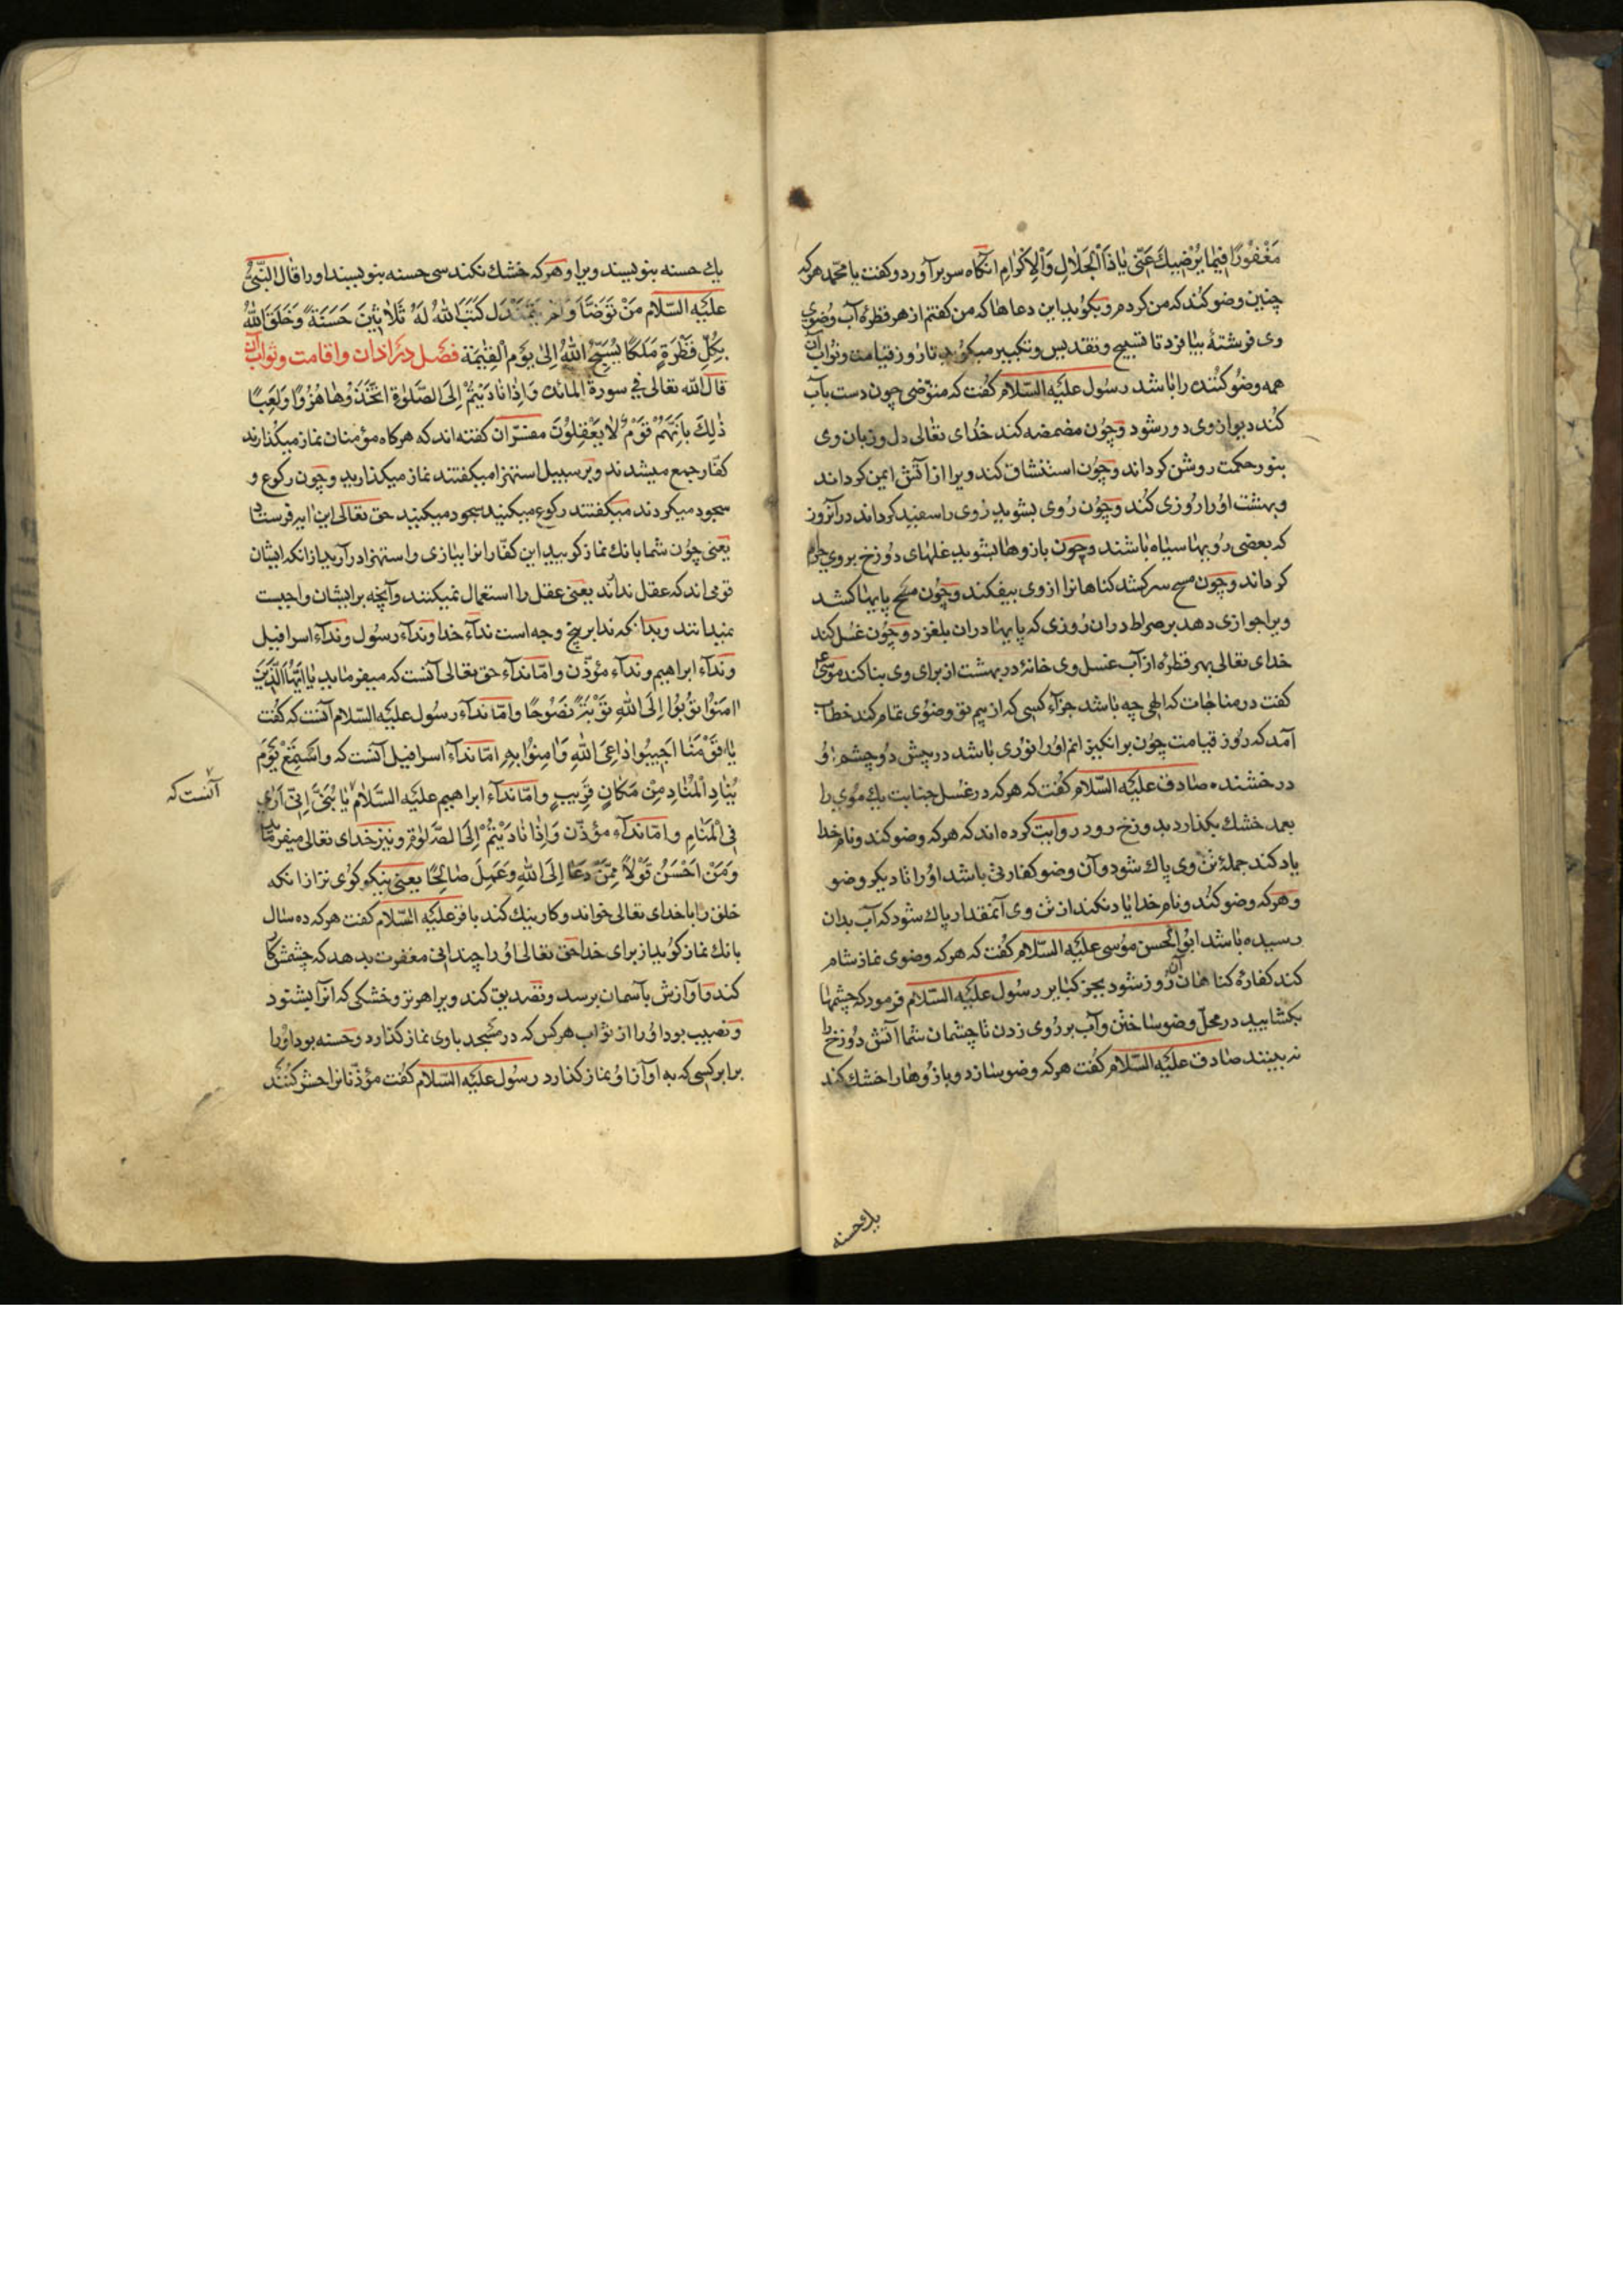 مَغْفُورًا فِيمَا يُرْضِيكَ عَنّي يَا ذَا الْجَلَالِ وَالْاِكْرَامِ انكاه سر بر آورد و كفت يا محمّد هركه
چنين وضو كند كه من كردم و بكويد اين دعاها كه من كفتم از هر قطرهٔ آب وضوى
وى فرشتهٔ بيافزد تا تسبيح و تقديس و تكبير ميكويد تا روز قيامت و ثواب آن
همه وضو كننده را باشد رسول عليه السّلام كفت كه متوضى چون دست بآب
كند ديو از وى دور شود و چون مضمضه كند خداى تعالى دل و زبان وى
بنور حكمت روشن كرداند و چون استنشاق كند ويرا از آتش ايمن كرداند
و بهشت اورا روزى كند و چون روى بشويد روى را سفيد كرداند در آنروز
كه بعضى رويها سياه باشند و چون بازوها بشويد غلهاى دوزخ بر وى حرام
كرداند و چون مسح سر كشد كناهانرا از وى بيفكند و چون مسح پايها كشد
ويرا جوازى دهد بر صراط دران روزى كه پايها دران بلغزد و چون غسل كند
خداى تعالى بهر قطره از آب غسل وى خانهٔ در بهشت از براى وى بنا كند موسى ع
كفت در مناجات كه الهى چه باشد جزاء كسى كه از بيم تو وضوى تمام كند خطاب
آمد كه روز قيامت چون بر انكيزانم اورا نورى باشد در پيش دو چشم او
درخشنده صادق عليه السّلام كفت كه هركه در غسل جنابت يك موى را
بعمد خشك بكذارد بدوزخ رود روايت كرده اند كه هركه وضو كند و نام خدا
ياد كند جملهٔ تن وى پاك شود و آن وضو كفارتى باشد اورا تا ديكر وضو
و هركه وضو كند و نام خدا ياد نكند از تن وى آنمقدار پاك شود كه آب بدان
رسيده باشد ابو الحسن موسى عليه السّلام كفت كه هركه وضوى نماز شام
كند كفارهٔ كناهان آن روز شود بجز كبائر رسول عليه السّلام فرمود كه چشمها
بكشاييد در محل وضو ساختن و آب بر روى زدن تا چشمان شما آتش دوزخ را
نه بينند صادق عليه السّلام كفت هركه وضو سازد و بازوها را خشك كند
يك حسنه
يك حسنه بنويسند ويرا و هركه خشك نكند سى حسنه بنويسند اورا قال النّبىّ
عليه السّلام مَنْ تَوَضَّأَ وَلَمْ يَتَمَنْدَلْ كَتَبَ اللهُ لَهُ ثَلَاثِينَ حَسَنَةً وَخَلَقَ اللهُ
بِكُلِّ قَطْرَةٍ مَلَكًا يُسَبِّحُ اللهَ اِلَى يَوْمِ الْقِيٰمَةِ فصل در اذان و اقامت و ثواب آن
قال الله تعالى في سورة المائدة وَاِذَا نَادَيْتُمْ اِلَى الصَّلٰوةِ اتَّخَذُوهَا هُزُوًا وَلَعِبًا
ذٰلِكَ بِاَنَّهُمْ قَوْمٌ لَا يَعْقِلُونَ مفسّران كفته اند كه هركاه مؤمنان نماز ميكذارند
كفّار جمع ميشدند و بر سبيل استهزا ميكفتند نماز ميكذاريد و چون ركوع و
سجود ميكردند ميكفتند ركوع ميكنيد سجود ميكنيد حق تعالى اين ايه فرستاد
يعنى چون شما بانك نماز كوييد اين كفّار انرا ببازى و استهزا در آريد ازانكه ايشان
قومى اند كه عقل ندارند يعنى عقل را استعمال نميكنند و آنچه بر ايشان واجبست
نميدانند و بدانكه ندا بر پنج وجه است نداء خدا و نداء رسول و نداء اسرافيل
و نداء ابراهيم و نداء مؤذّن و امّا نداء حق تعالى آنست كه ميفرمايد يَا اَيُّهَا الَّذِينَ
اٰمَنُوا تُوبُوا اِلَى اللهِ تَوْبَةً نَصُوحًا و امّا نداء رسول عليه السّلام آنست كه كفت
يَا قَوْمَنَا اَجِيبُوا دَاعِيَ اللهِ وَاٰمِنُوا بِهِ امّا نداء اسرافيل آنست كه وَاسْتَمِعْ يَوْمَ
يُنَادِ الْمُنَادِ مِنْ مَكَانٍ قَرِيبٍ و امّا نداء ابراهيم عليه السّلام يَا بُنَيَّ اِنِّي اَرٰى
آنست كه
فِي الْمَنَامِ و امّا نداء مؤذّن وَاِذَا نَادَيْتُمْ اِلَى الصَّلٰوةِ و نيز خداى تعالى ميفرمايد
وَمَنْ اَحْسَنُ قَوْلًا مِمَّنْ دَعَا اِلَى اللهِ وَعَمِلَ صَالِحًا يعنى نيكو كوى تر ازانكه
خلق را با خداى تعالى خواند و كار نيك كند باقر عليه السّلام كفت هركه ده سال
بانك نماز كويد از براى خدا حق تعالى اورا چندانى مغفرت بدهد كه چشمش كار
كند و آوازش بآسمان برسد و تصديق كند ويرا هر تر و خشكى كه انرا بشنود
و نصيب بود اورا از ثواب هركس كه در مسجد با وى نماز كذارد و حسنه بود اورا
برابر كسى كه به آواز او نماز كذارد رسول عليه السّلام كفت مؤذّنانرا حشر كنند